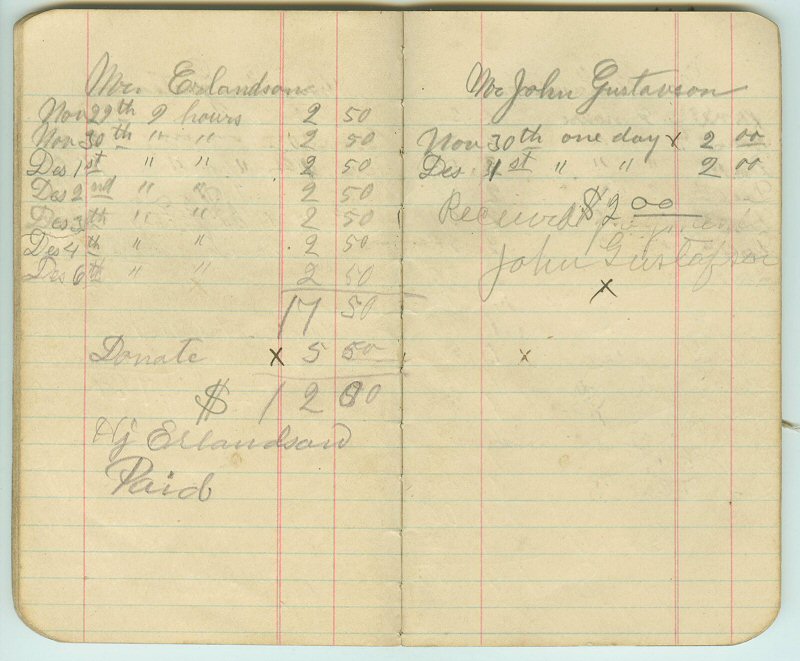 Mr. Erlandson
Nov 29th 9 hours 2 50
Nov 30th " " 2 50
Des 1st " " 2 50
Des 2nd " " 2 50
Des 3th " " 2 50
Des 4th " " 2 50
Des 6th " " 2 50
17 50
Donate x 5 50
$ 12 00
Hj Erlandson
Paid
Mr John Gustavson
Nov 30th one day x 2 00
Des 1st " " " 2 00
Received $2 00
payment
John Gustafson
x
x